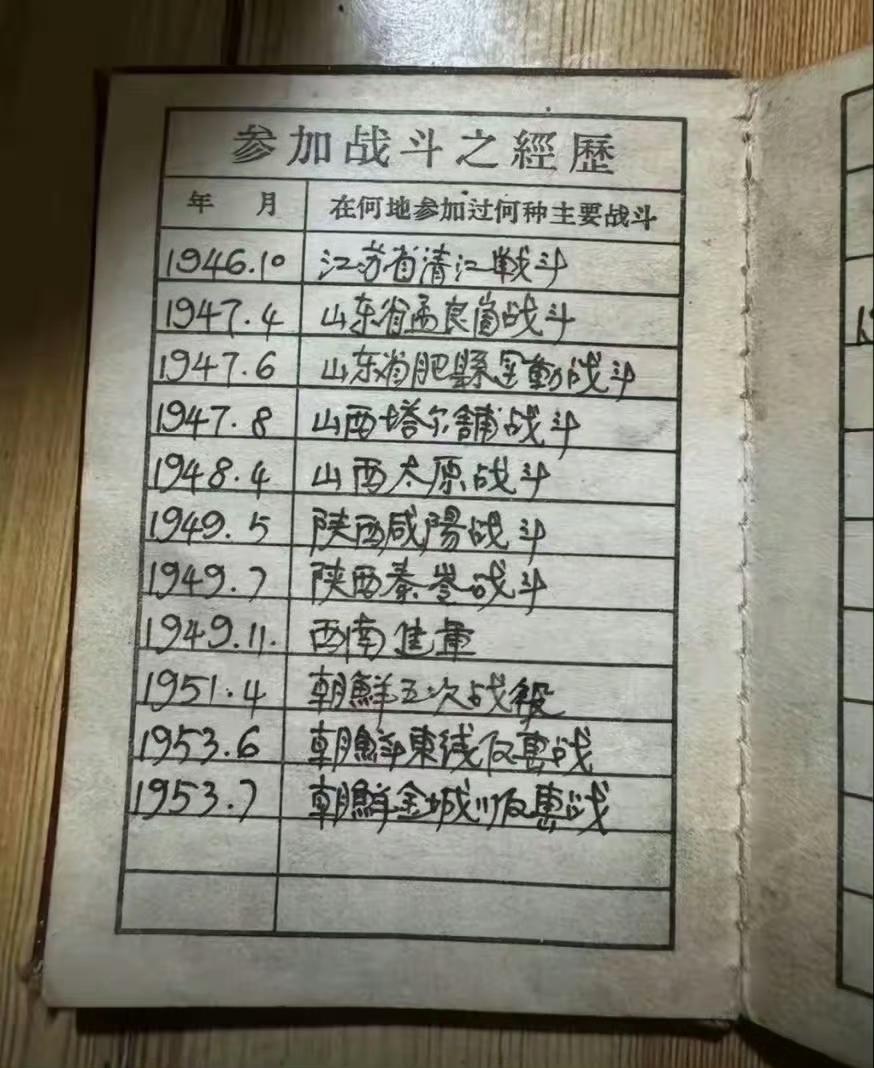 参加战斗之經歷
年 月 在何地参加过何种主要战斗
1946.10 江苏省清江戰斗
1947.4 山东省孟良崮战斗
1947.6 山东省肥縣全動战斗
1947.8 山西塔尔舖战斗
1948.4 山西太原战斗
1949.5 陕西咸陽战斗
1949.7 陕西秦岺战斗
1949.11. 西南進軍
1951.4 朝鮮五次战役
1953.6 朝鮮東线反击战
1953.7 朝鮮金城川反击战